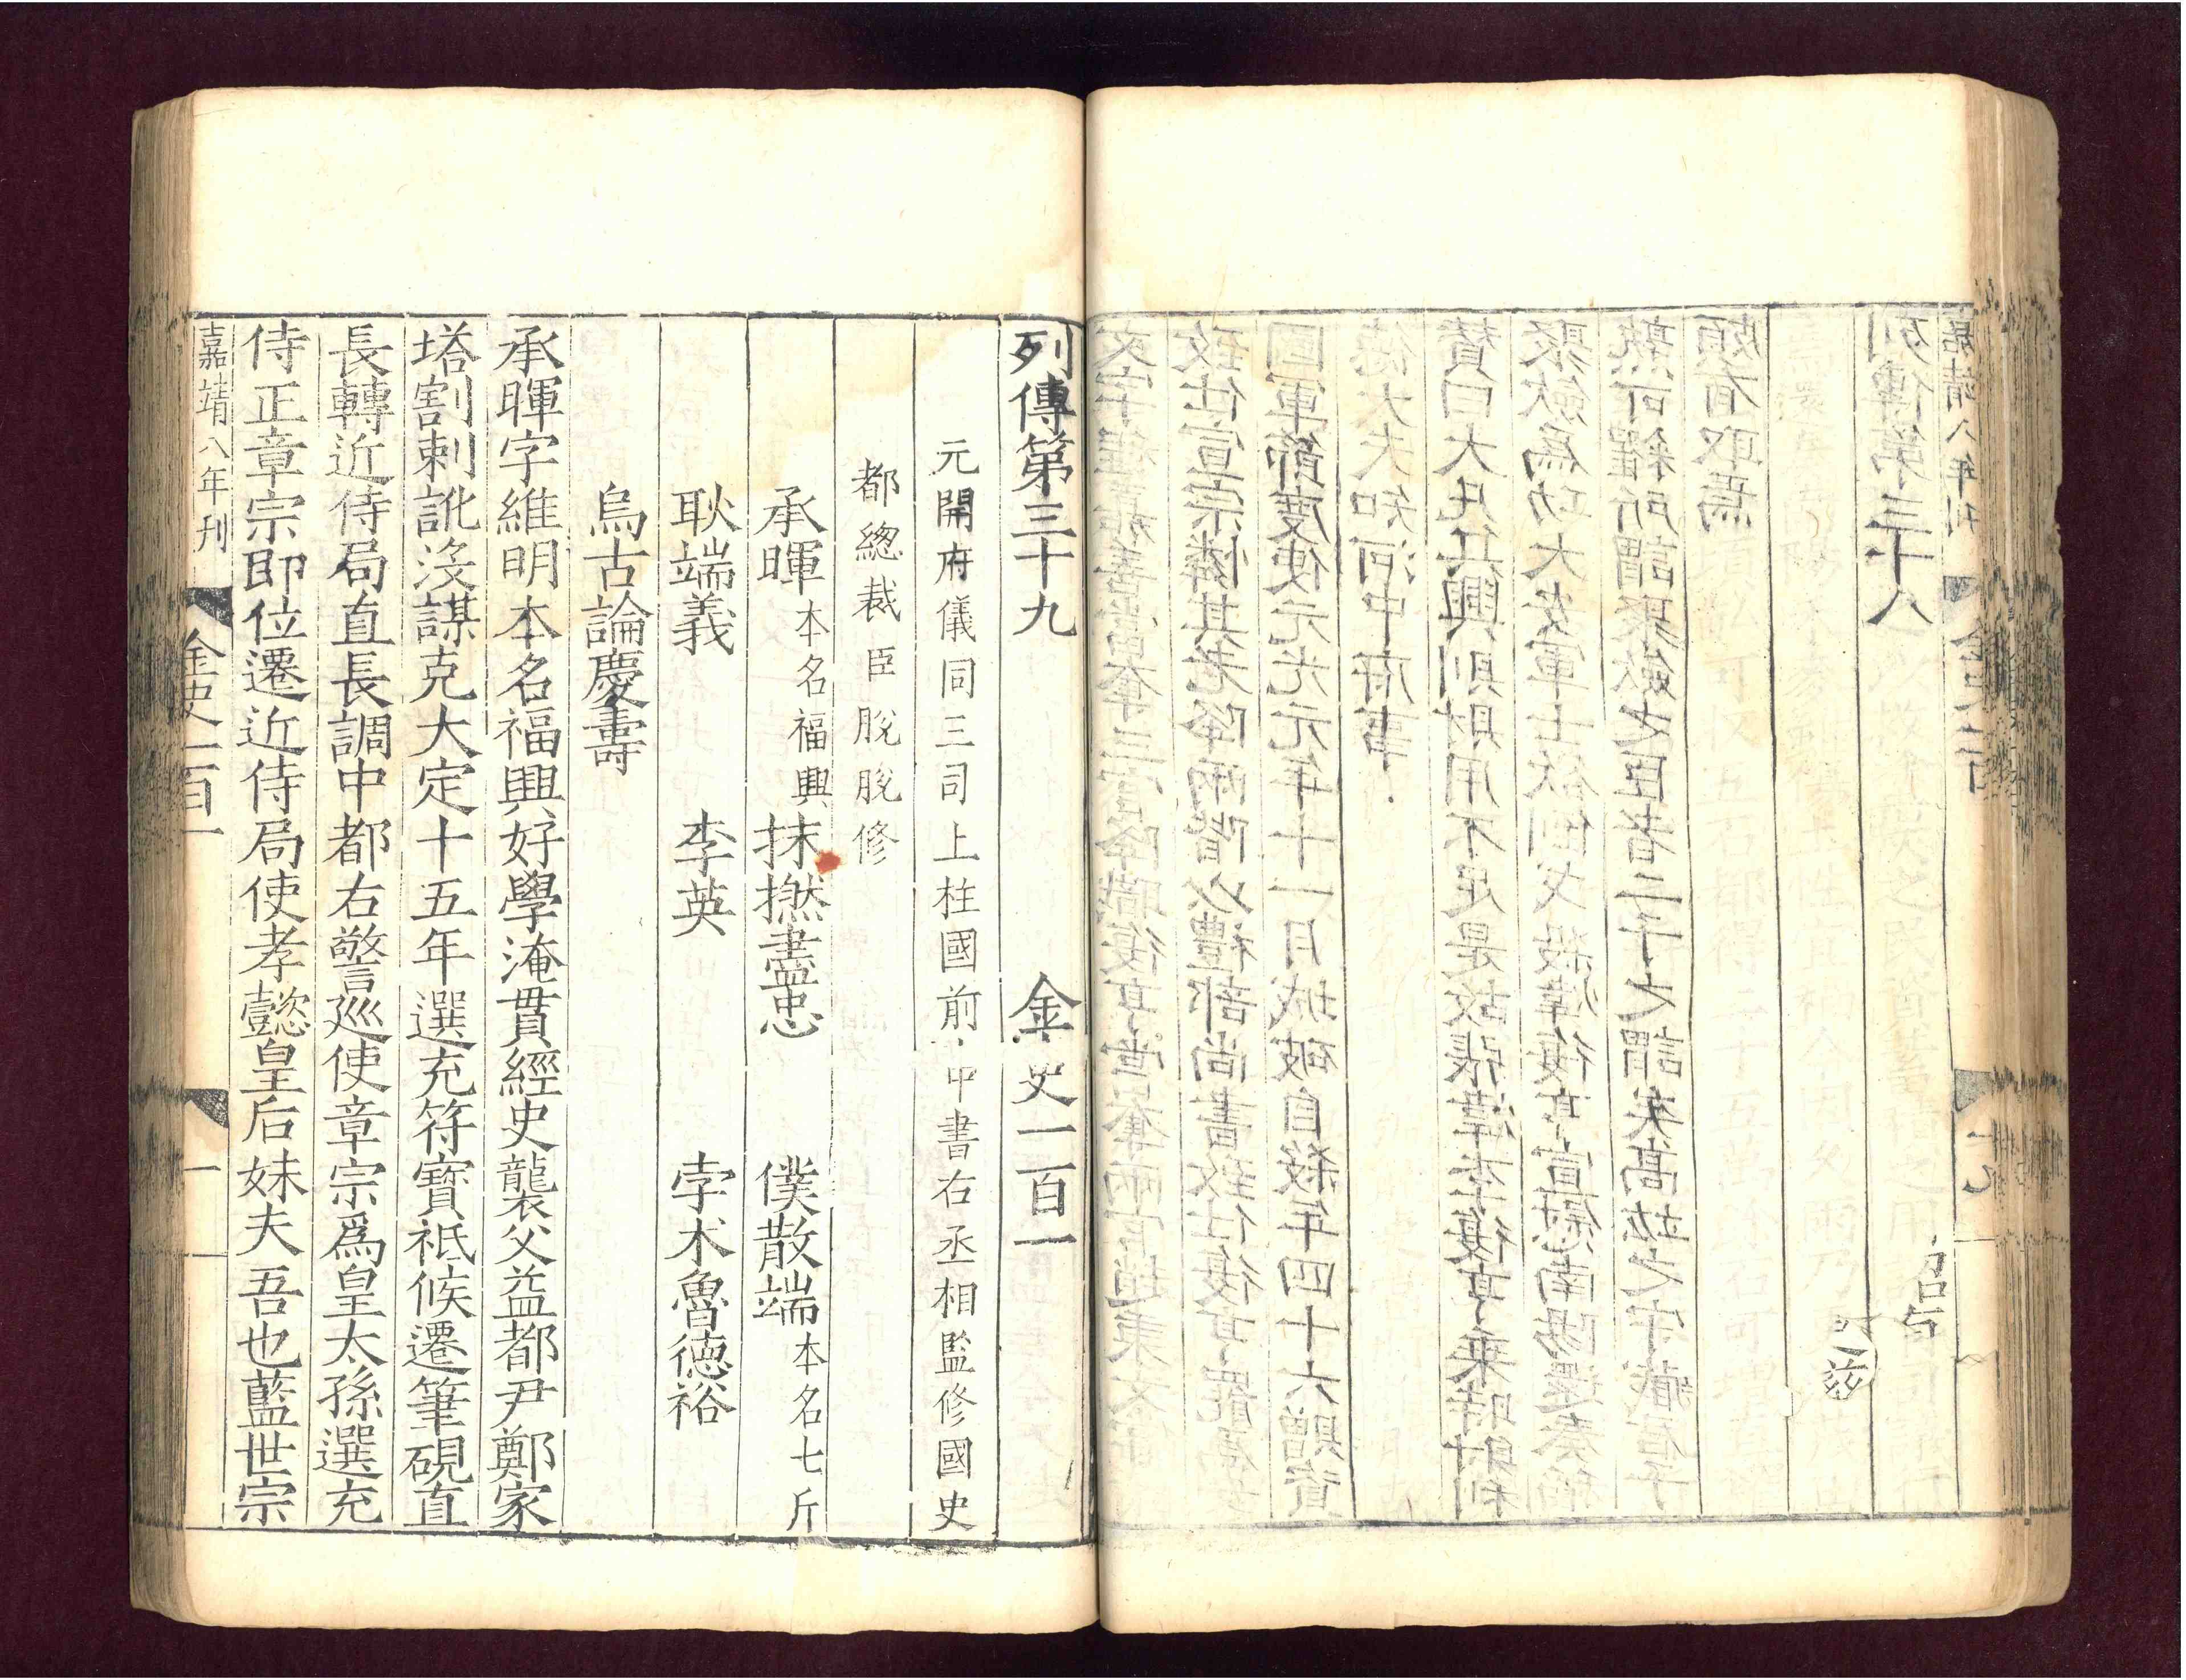 致仕宣宗憐其老降兩階以禮部尚書致仕復亨罷爲
國軍節度使元光元年十一月城破自殺年四十六贈資
德大夫知河中府事
贊曰大凡兵興則財用不足是故張煒李復亨乘時射利
聚斂爲功大安軍士欲倒戈殺煒復亨宣慰南陽還奏稱
孰可糴所謂聚斂之臣者二子之謂矣高竑之守藏君子
頗有取焉
列傳第三十八
嘉靖八年刊
列傳第三十九　金史一百一
元開府儀同三司上柱國前中書右丞相監修國史
都總裁臣脫脫修
承暉本名福興　抹撚盡忠　僕散端本名七斤
耿端義　李英　孛术魯德裕
烏古論慶壽
承暉字維明本名福興好學淹貫經史襲父益都尹鄭家
塔割剌訛沒謀克大定十五年選充符寶祗候遷筆硯直
長轉近侍局直長調中都右警巡使章宗爲皇太孫選充
侍正章宗即位遷近侍局使孝懿皇后妹夫吾也藍世宗
嘉靖八年刊　金史一百一　一